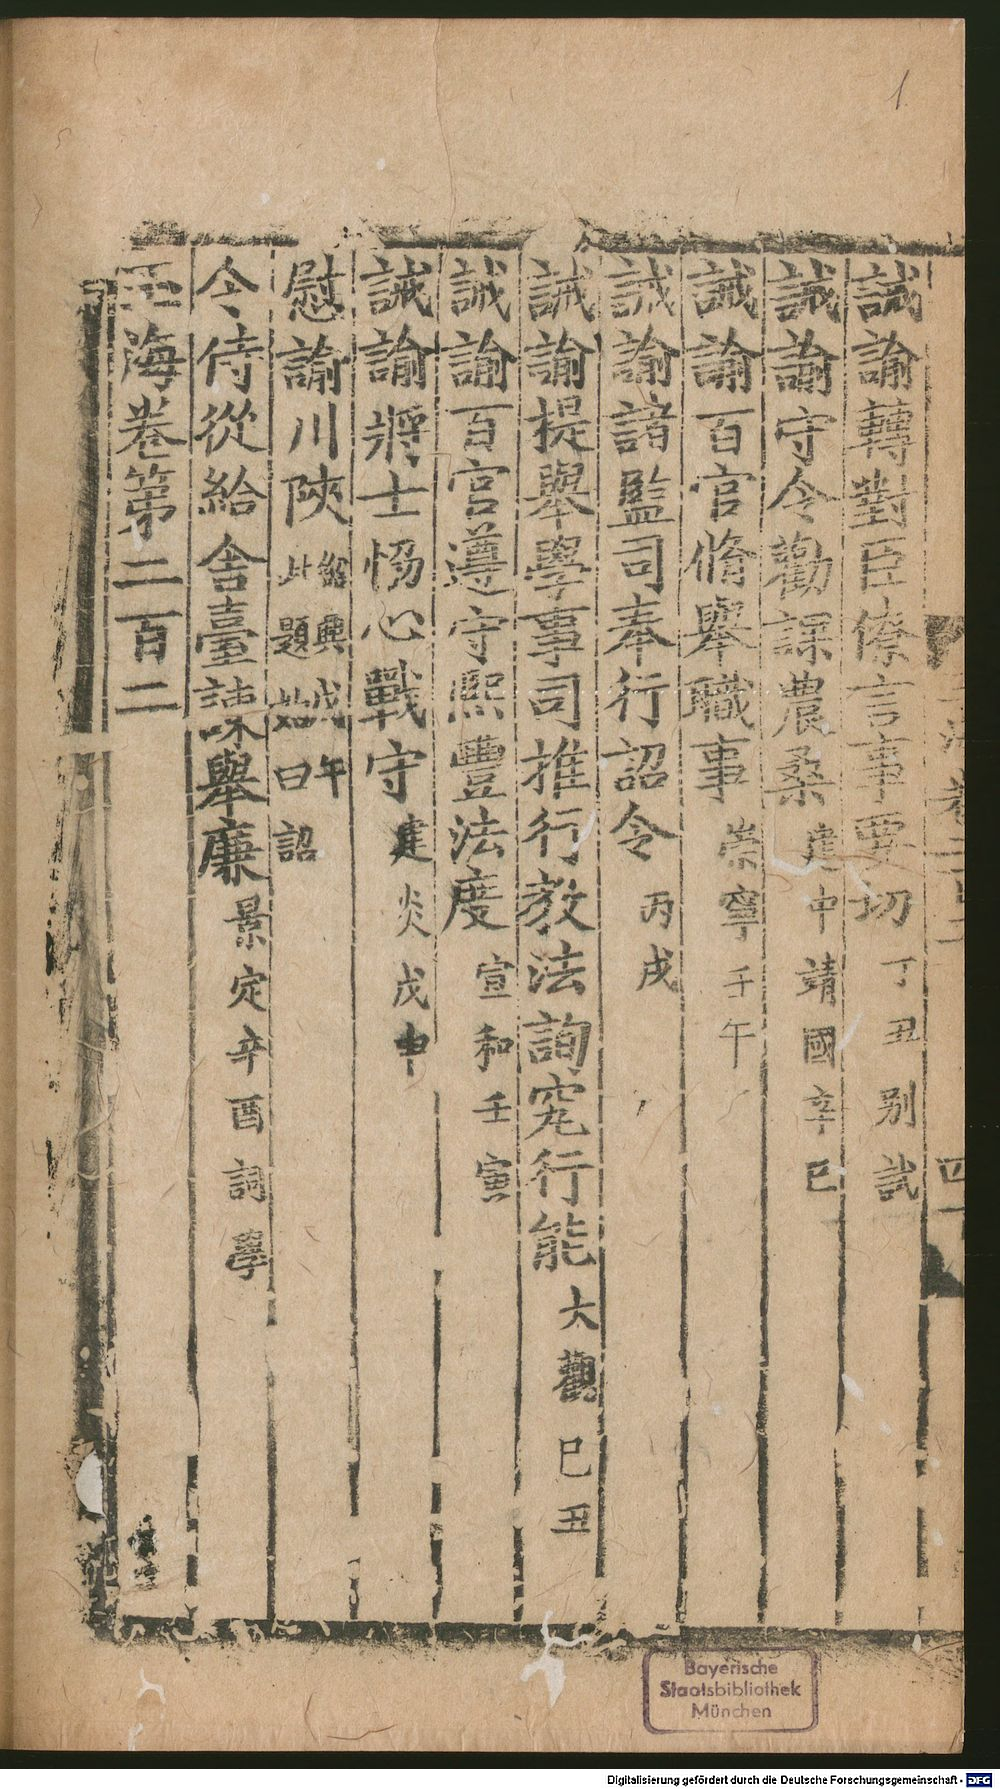 1
誡諭轉對臣僚言事要切 丁丑別試
誡諭守令勸課農桑 建中靖國辛巳
誡諭百官脩舉職事 崇寧壬午
誡諭諸監司奉行詔令 丙戌
誡諭提舉學事司推行教法詢究行能 大觀己丑
誡諭百官遵守熙豐法度 宣和壬寅
誡諭將士惕心戰守 建炎戊申
慰諭川陝 紹興戊午
此題如曰詔
令侍從給舍臺諫舉廉 景定辛酉詞學
玉海卷第二百二
Bayerische
Staatsbibliothek
München
Digitalisierung gefördert durch die Deutsche Forschungsgemeinschaft - DFG